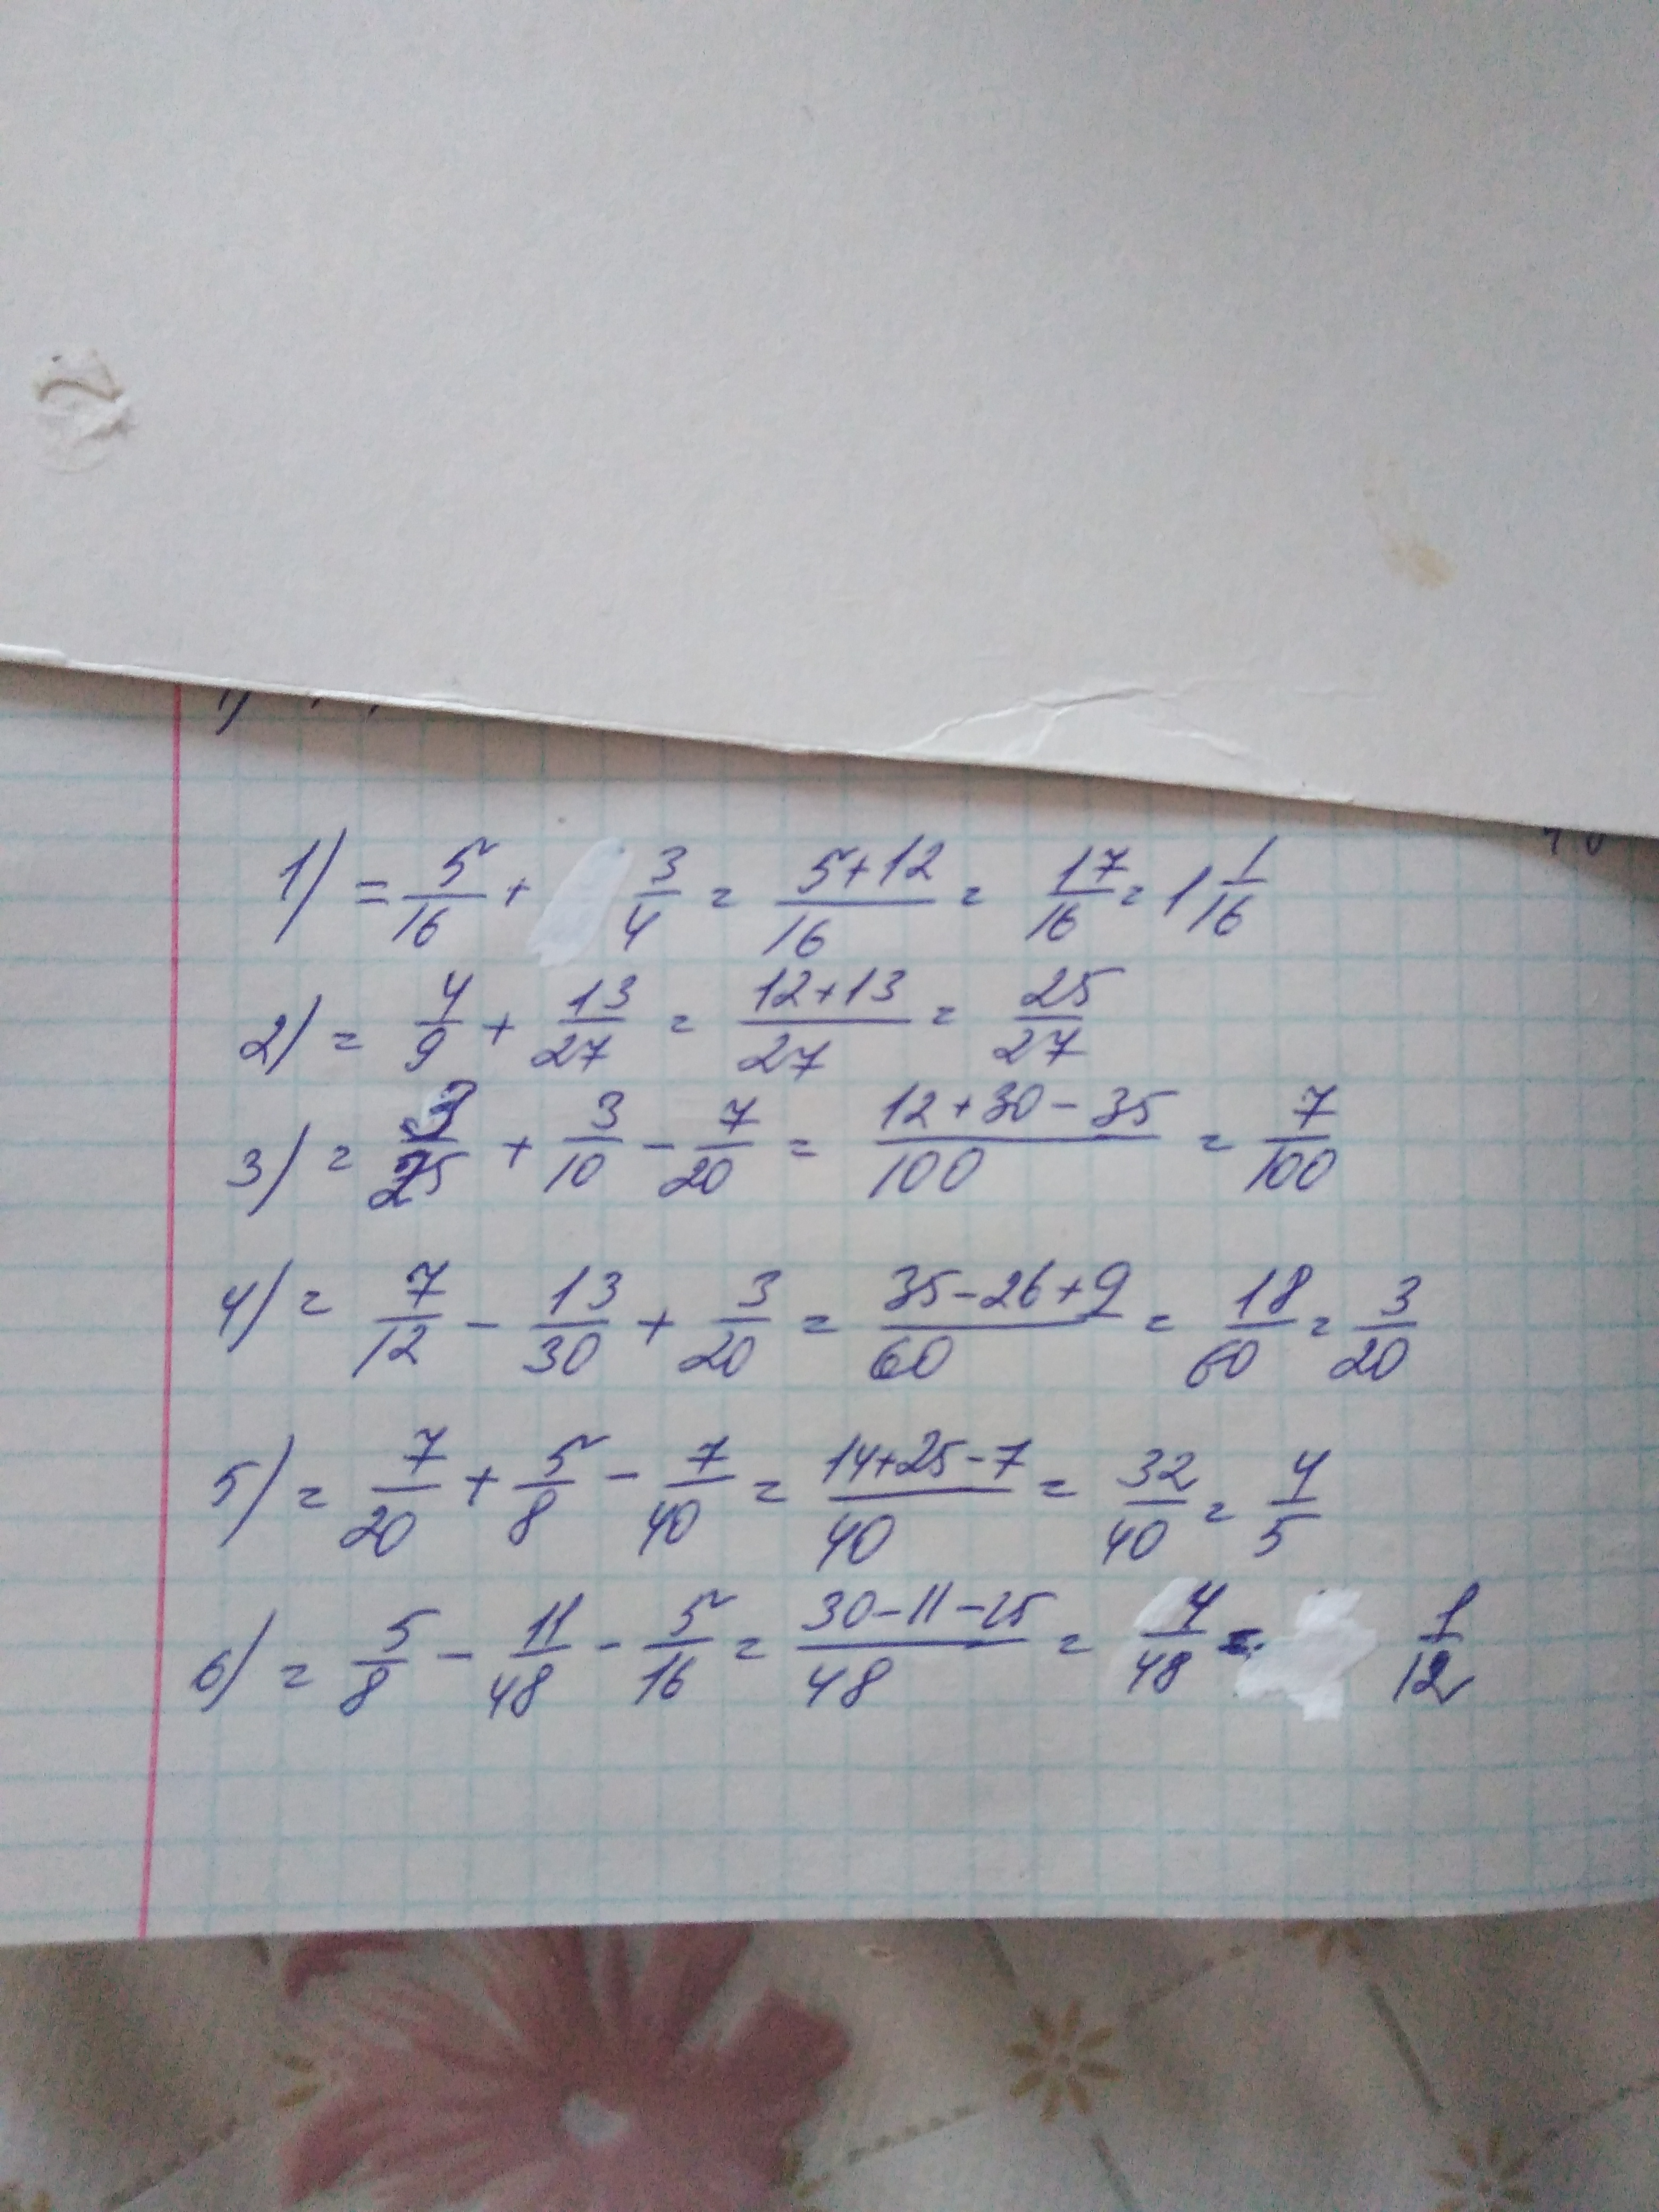 1) = 5/16 + 3/4 = 5+12/16 = 17/16 = 1 1/16
2) = 4/9 + 13/27 = 12+13/27 = 25/27
3) = 3/25 + 3/10 - 7/20 = 12+30-35/100 = 7/100
4) = 7/12 - 13/30 + 3/20 = 35-26+9/60 = 18/60 = 3/20
5) = 7/20 + 5/8 - 7/40 = 14+25-7/40 = 32/40 = 4/5
6) = 5/8 - 11/48 - 5/16 = 30-11-15/48 = 4/48 = 1/12